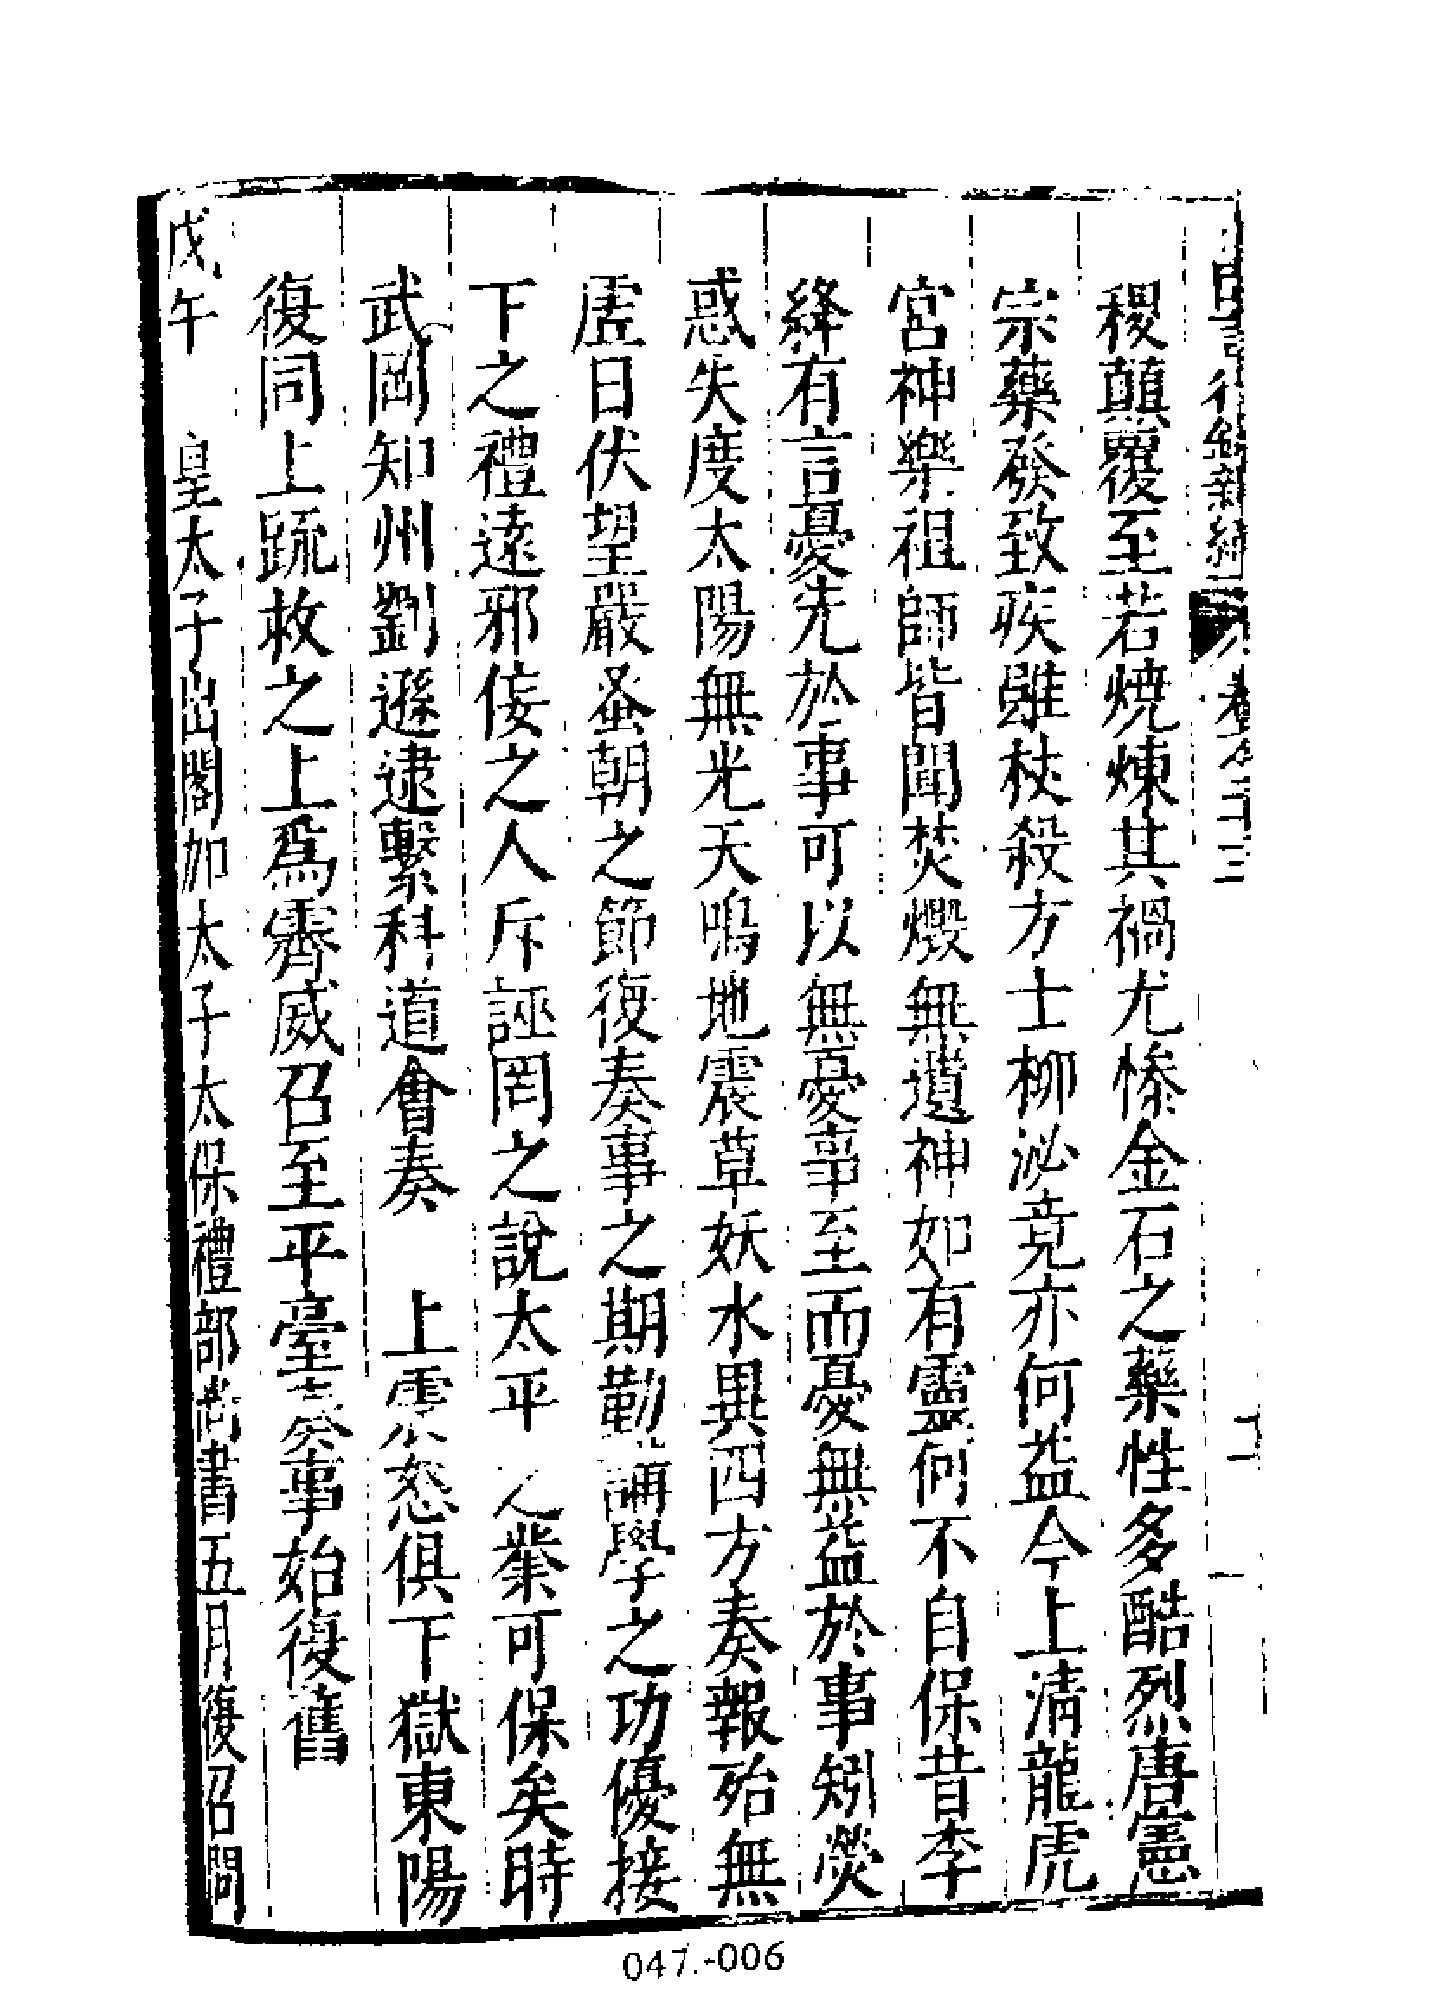 稷顛覆至若燒煉其禍尤慘金石之藥性多酷烈唐憲
宗藥發致疾雖杖殺方士柳泌竟亦何益今上清龍虎
宮神樂祖師皆聞焚燬無遺神如有靈何不自保昔李
絳有言憂先於事可以無憂事至而憂無益於事矧熒
惑失度太陽無光天鳴地震草妖水異四方奏報殆無
虛日伏望嚴蚤朝之節復奏事之期勤講學之功優接
下之禮遠邪佞之人斥誣罔之說太平之業可保矣時
武岡知州劉遜逮繫科道會奏 上震怒俱下獄東陽
復同上疏救之上為霽威召至平臺奏事始復舊
戊午 皇太子出閣加太子太保禮部尚書五月復召問
047.-006